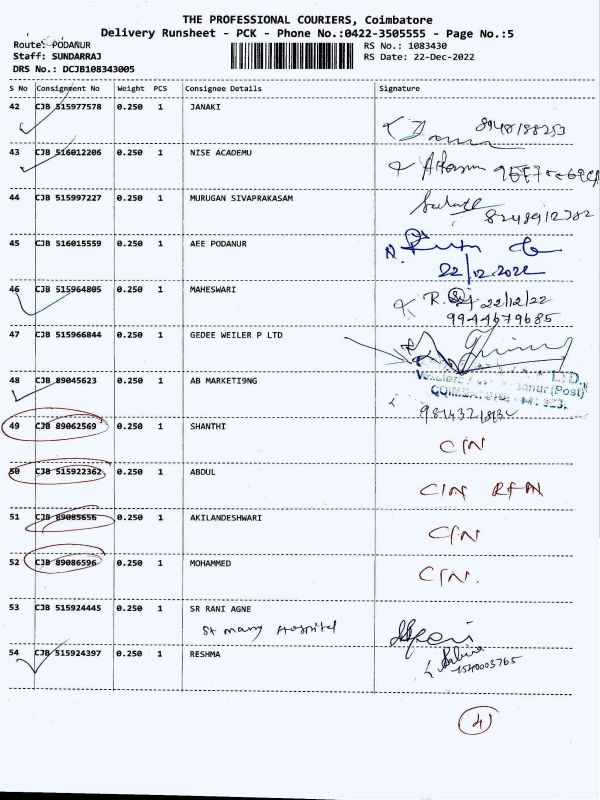 THE PROFESSIONAL COURIERS, Coimbatore
Delivery Runsheet - PCK - Phone No.:0422-3505555 - Page No.:5
Route: PODANUR
RS No.: 1083430
Staff: SUNDARRAJ
RS Date: 22-Dec-2022
DRS No.: DCJB108343005
S No Consignment No Weight PCS Consignee Details Signature
42 CJB 515977578 0.250 1 JANAKI
8948188253
43 CJB 516012206 0.250 1 NISE ACADEMU
44 CJB 515997227 0.250 1 MURUGAN SIVAPRAKASAM
8248912782
45 CJB 516015559 0.250 1 AEE PODANUR
22/12.2022
46 CJB 515964805 0.250 1 MAHESWARI
22/12/22
9944679685
47 CJB 515966844 0.250 1 GEDEE WEILER P LTD
LTD.
(Post)
48 CJB 89045623 0.250 1 AB MARKETI9NG
49 CJB 89062569 0.250 1 SHANTHI C/N
50 CJB 515922362 0.250 1 ABDUL C/N
51 CJB 89085656 0.250 1 AKILANDESHWARI C/N
52 CJB 89086596 0.250 1 MOHAMMED C/N.
53 CJB 515924445 0.250 1 SR RANI AGNE
St mary Hospital
54 CJB 515924397 0.250 1 RESHMA
4